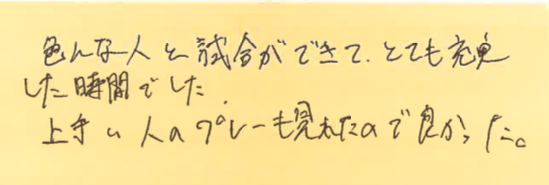 色んな人と試合ができて、とても充実
した時間でした。
上手い人のプレーも見れたので良かった。